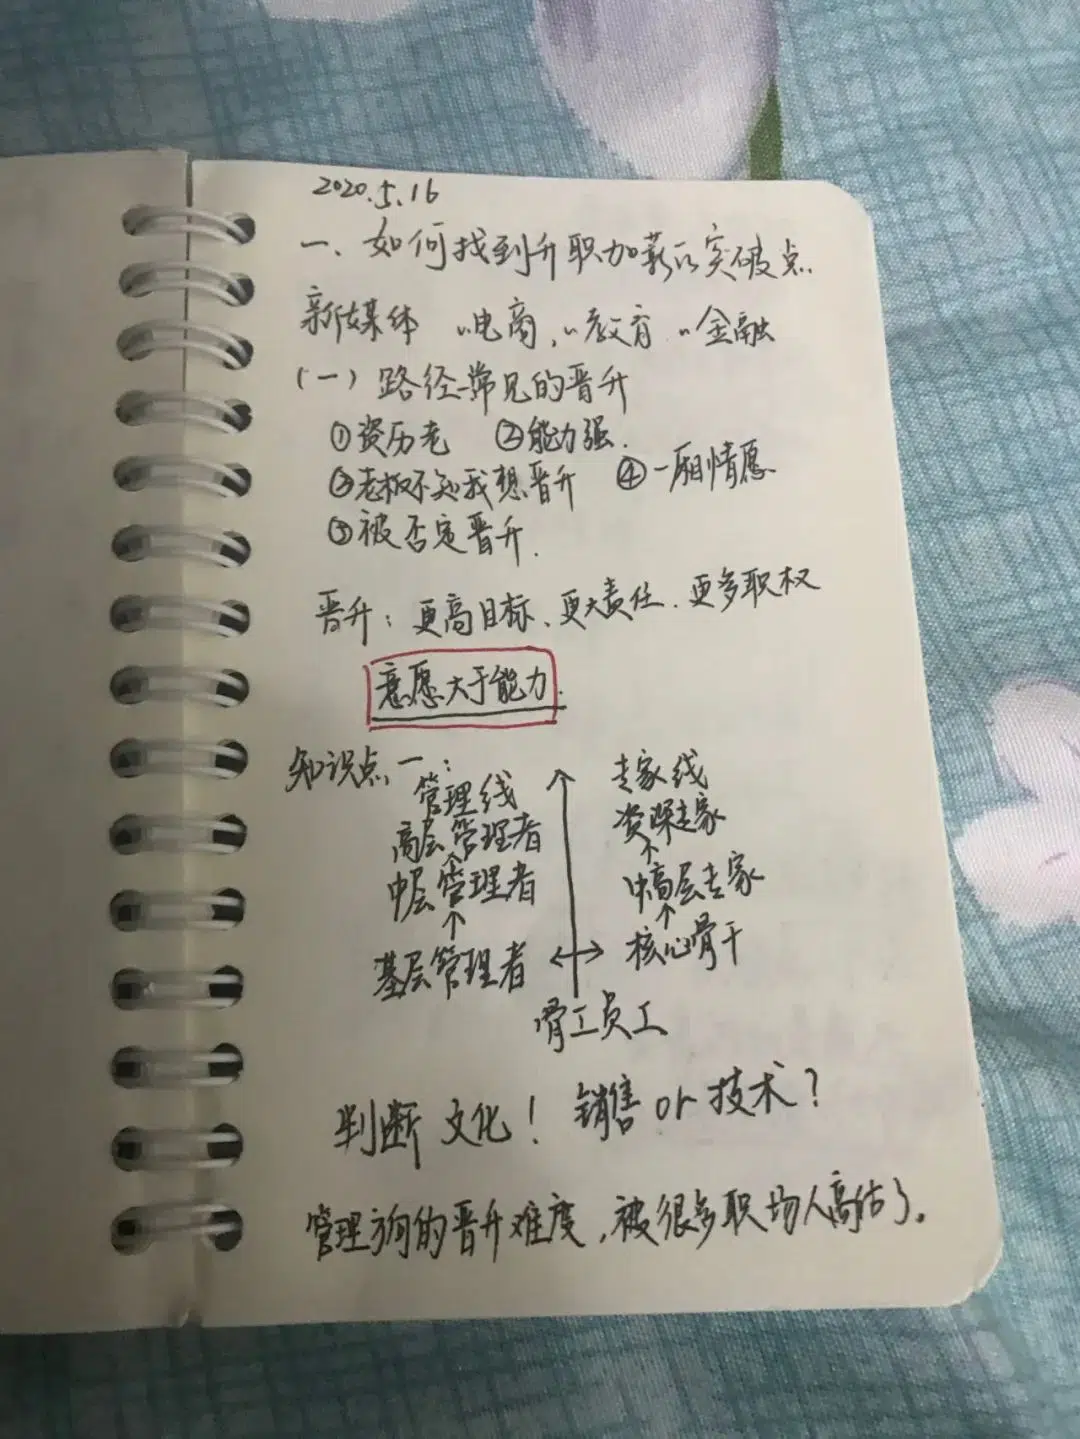 2020.5.16
一、如何找到升职加薪的突破点
新媒体 "电商, "教育 "金融
(一) 路径-常见的晋升
①资历老 ②能力强.
③老板不知我想晋升 ④一厢情愿
⑤被否定晋升.
晋升: 更高目标、更大责任、更多职权
意愿大于能力.
知识点一:
管理线 专家线
高层管理者 资深专家
↑ ↑
中层管理者 中高层专家
↑ ↑
基层管理者 ←→ 核心骨干
骨工员工
判断文化! 销售or技术?
管理方向的晋升难度,被很多职场人高估了。